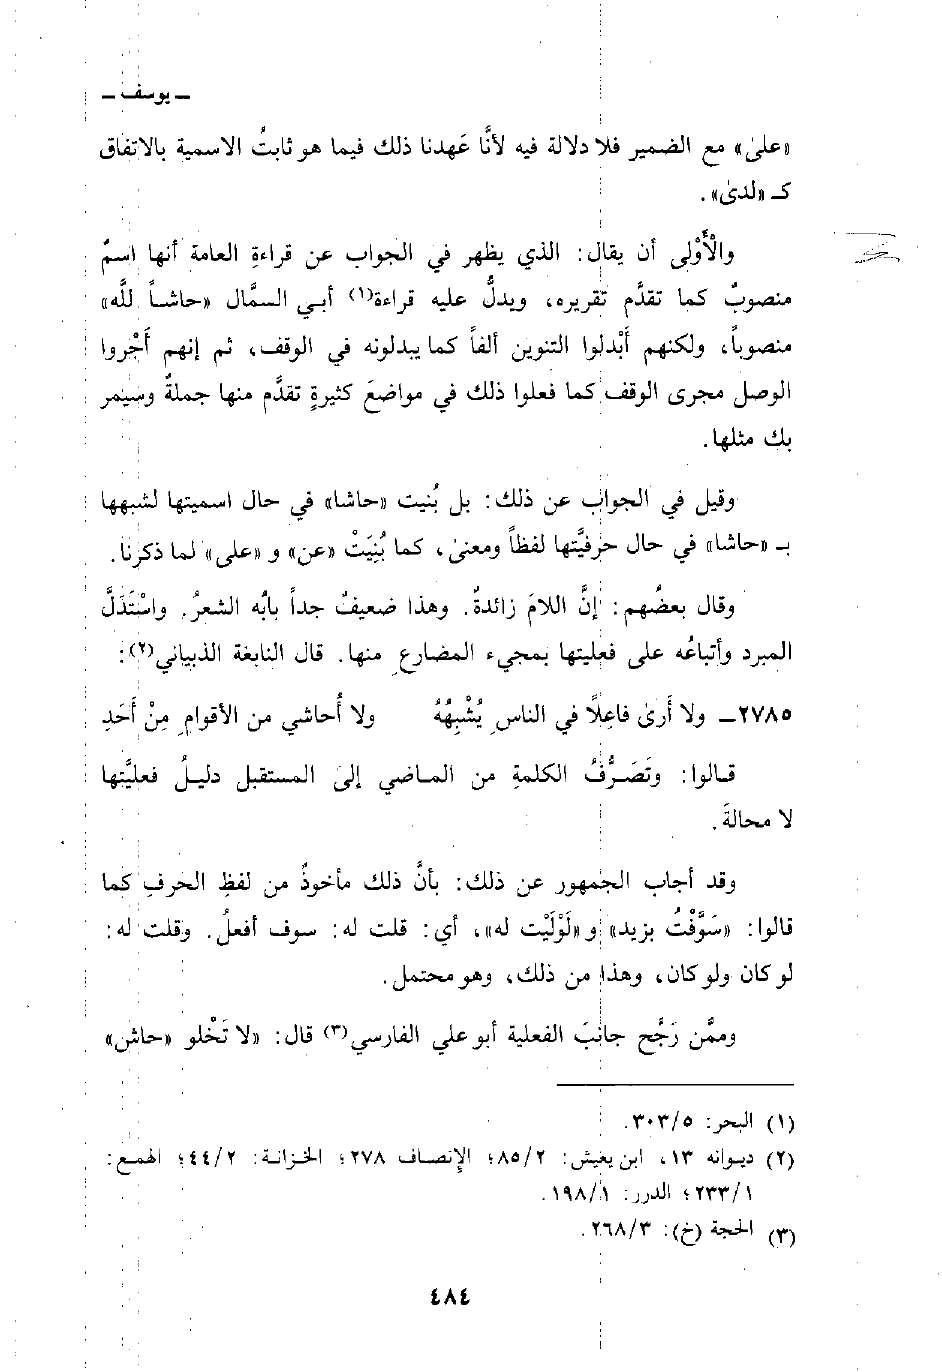 ـ يوسف ـ
«على» مع الضمير فلا دلالة فيه لأنَّا عَهدنا ذلك فيما هو ثابتُ الاسمية بالاتفاق
كـ «لدى».
والْأَوْلى أن يقال: الذي يظهر في الجواب عن قراءةِ العامة أنها اسمٌ
منصوبٌ كما تقدَّم تقريره، ويدلُّ عليه قراءة(١) أبي السمَّال «حاشاً للَّه»
منصوباً، ولكنهم أَبْدلوا التنوين ألفاً كما يبدلونه في الوقف، ثم إنهم أَجْروا
الوصل مجرى الوقف كما فعلوا ذلك في مواضعَ كثيرةٍ تقدَّم منها جملةٌ وسيمر
بك مثلها.
وقيل في الجواب عن ذلك: بل بُنيت «حاشا» في حال اسميتها لشبهها
بـ «حاشا» في حال حرفيَّتها لفظاً ومعنى، كما بُنِيَتْ «عن» و «على» لما ذكرنا.
وقال بعضُهم: إنَّ اللامَ زائدةٌ. وهذا ضعيفٌ جداً بابُه الشعرُ. واسْتَدَلَّ
المبرد وأتباعُه على فعليتها بمجيء المضارعِ منها. قال النابغة الذبياني(٢):
٢٧٨٥ـ ولا أرى فاعِلًا في الناسِ يُشْبِهُهُ ولا أُحاشي من الأقوامِ مِنْ أَحَدِ
قالوا: وتَصَرُّفُ الكلمةِ من الماضي إلى المستقبل دليلُ فعليَّتها
لا محالةَ.
وقد أجاب الجمهور عن ذلك: بأنَّ ذلك مأخوذٌ من لفظِ الحرفِ كما
قالوا: «سَوَّفْتُ بزيد» و «لَوْلَيْت له»، أي: قلت له: سوف أفعلُ. وقلت له:
لو كان ولو كان، وهذا من ذلك، وهو محتمل.
وممَّن رَجَّح جانبَ الفعلية أبو علي الفارسي(٣) قال: «لا تَخْلو «حاش»
(١) البحر: ٣٠٣/٥.
(٢) ديوانه ١٣، ابن يعيش: ٨٥/٢؛ الإنصاف ٢٧٨؛ الخزانة: ٤٤/٢؛ الهمع:
٢٣٣/١؛ الدرر: ١٩٨/١.
(٣) الحجة (خ): ٢٦٨/٣.
٤٨٤